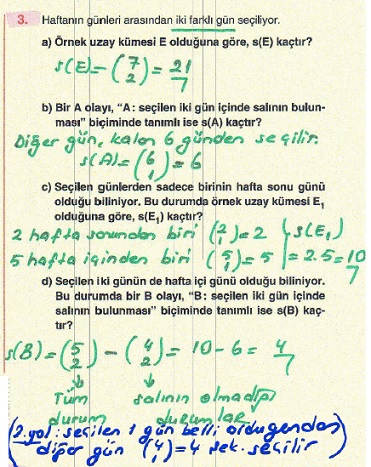 3. Haftanın günleri arasından iki farklı gün seçiliyor.
a) Örnek uzay kümesi E olduğuna göre, s(E) kaçtır?
s(E)=(7 2)=21
b) Bir A olayı, "A: seçilen iki gün içinde salının bulun-
ması" biçiminde tanımlı ise s(A) kaçtır?
Diğer gün, kalan 6 günden seçilir.
s(A)=(6 1)=6
c) Seçilen günlerden sadece birinin hafta sonu günü
olduğu biliniyor. Bu durumda örnek uzay kümesi E₁
olduğuna göre, s(E₁) kaçtır?
2 hafta sonundan biri (2 1)=2 s(E₁)
5 hafta içinden biri (5 1)=5 =2.5=10
d) Seçilen iki günün de hafta içi günü olduğu biliniyor.
Bu durumda bir B olayı, "B: seçilen iki gün içinde
salının bulunması" biçiminde tanımlı ise s(B) kaç-
tır?
s(B)=(5 2) - (4 2)= 10-6= 4
Tüm salının olmadığı
durum durumlar
(2.yol: seçilen 1 gün belli olduğundan
diğer gün (4 1)=4 şek. seçilir)